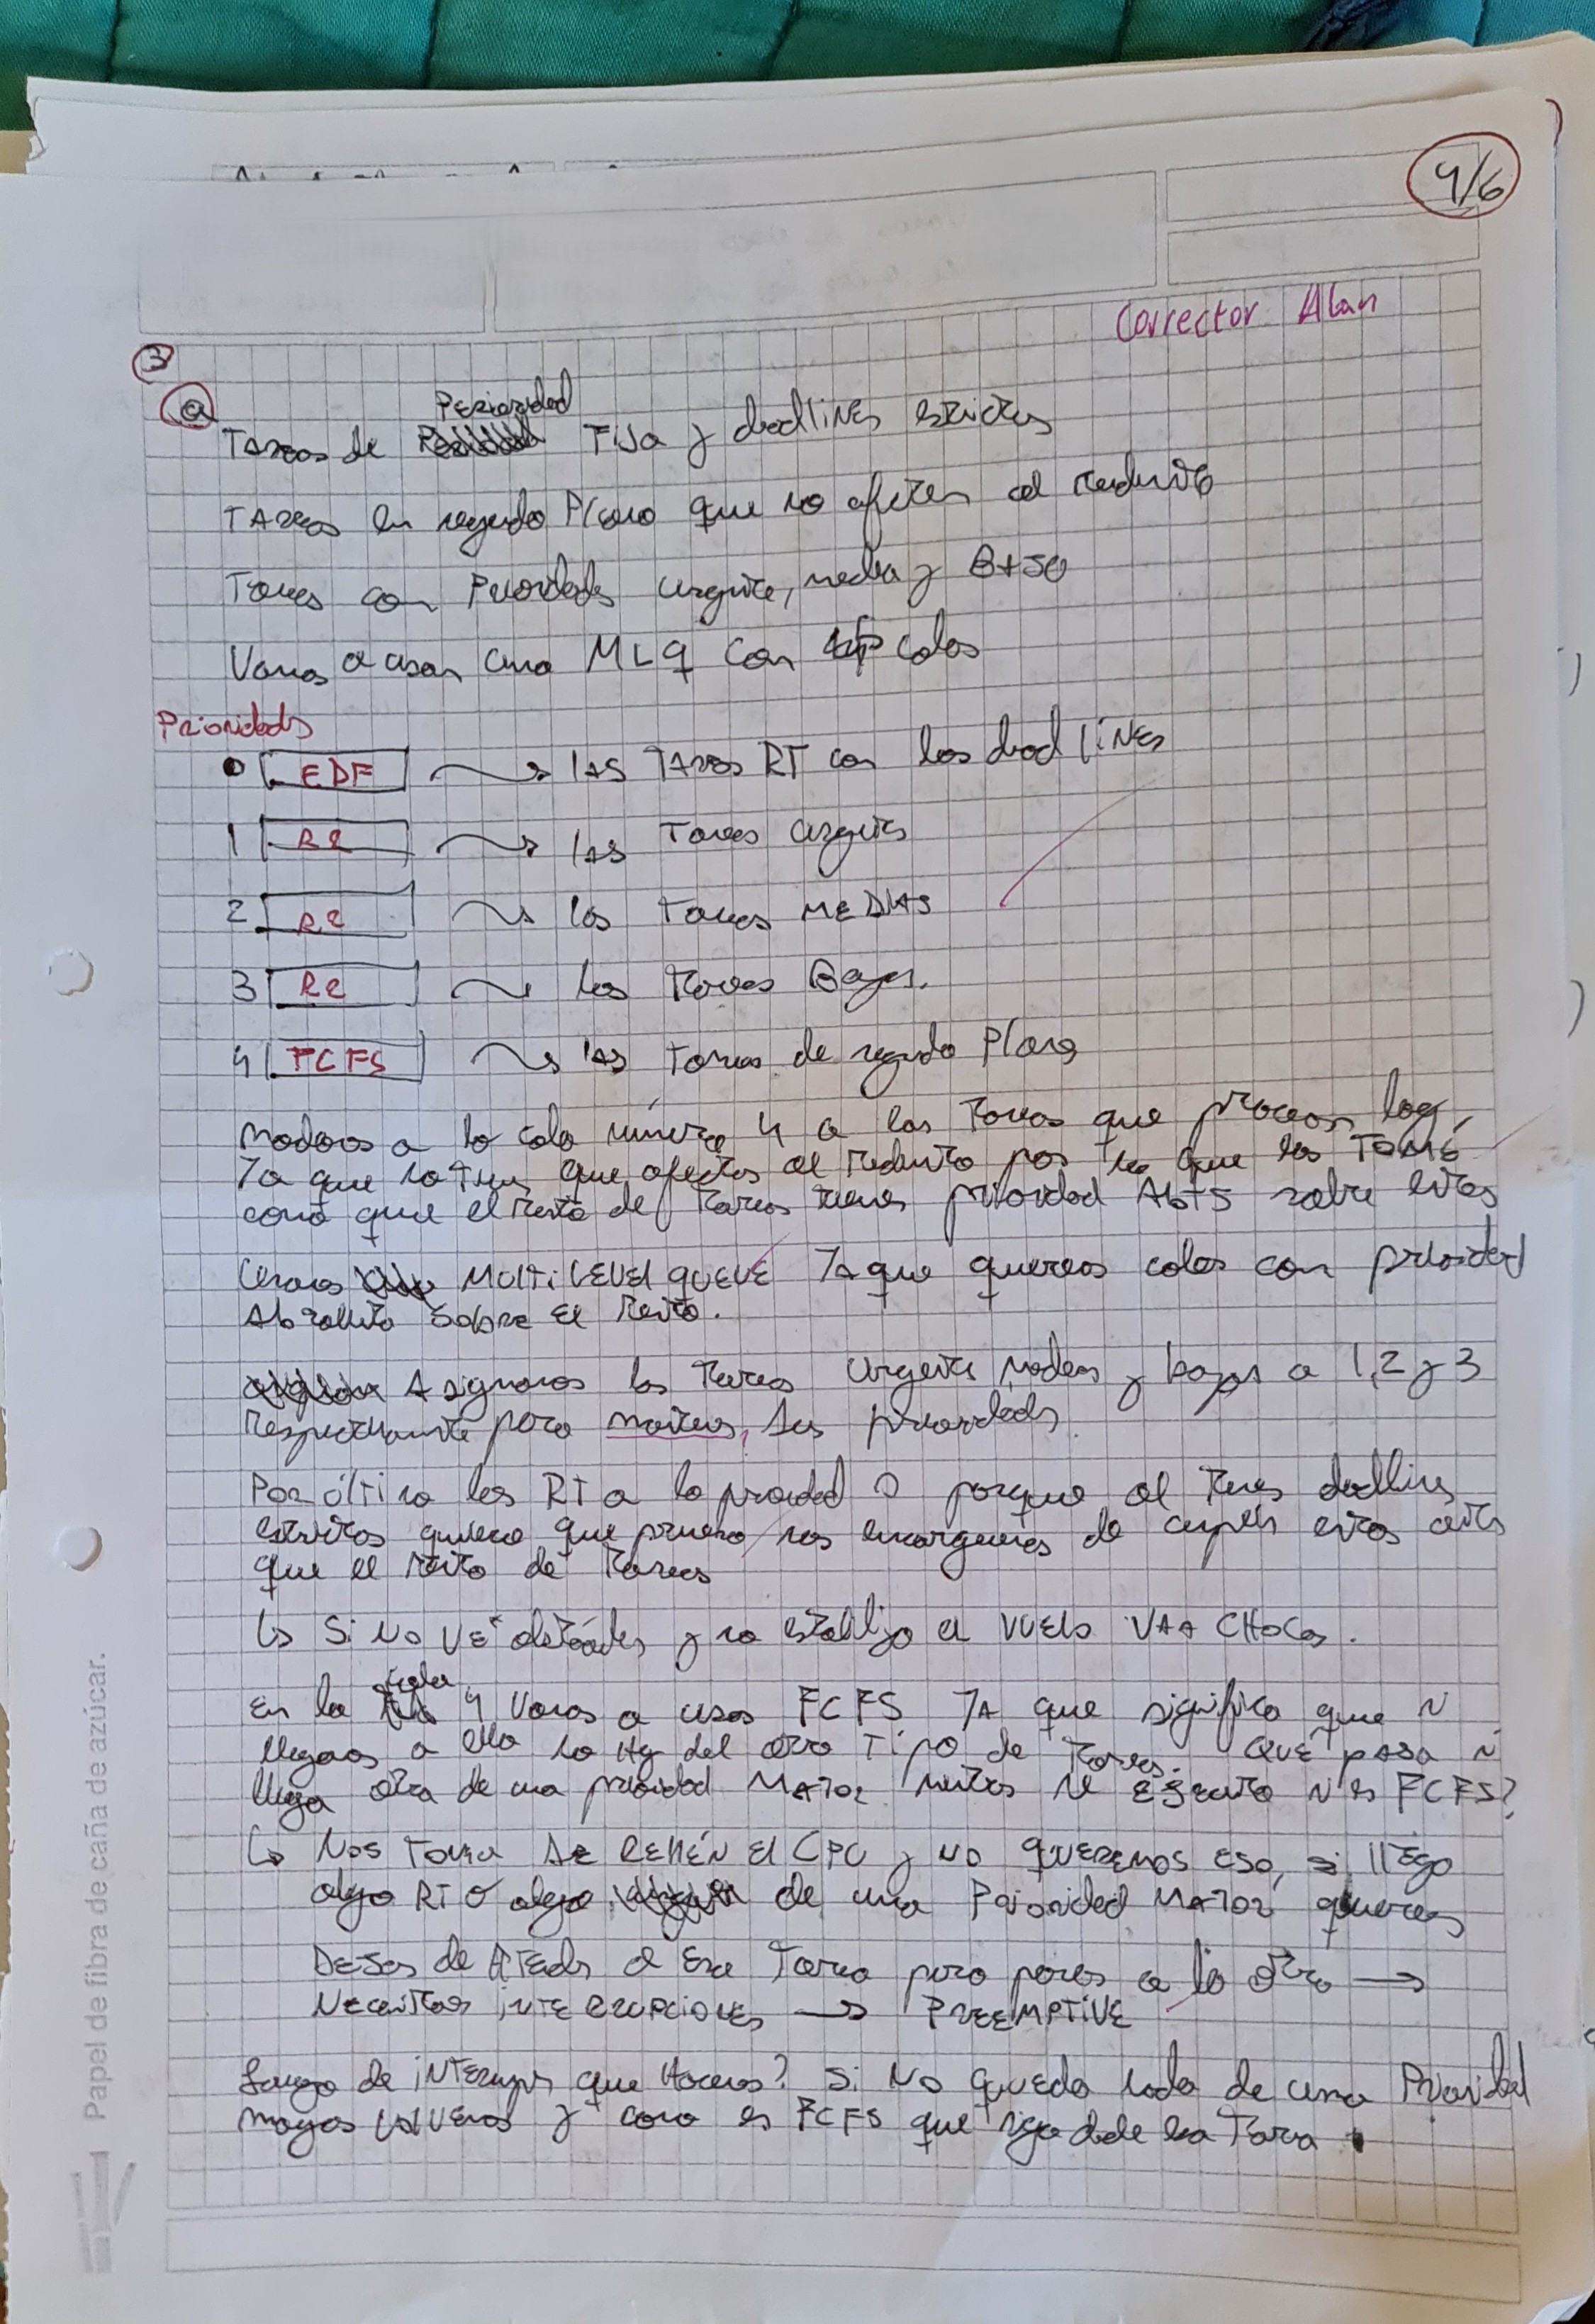 4/6
Corrector Alan
3
a
Perioridad
Tareas de Fija y deadlines estrictos
Tareas en segundo Plano que no afecten al rendimiento
Tareas con Prioridades urgente, media y BAJA
Vamos a usar una MLQ con colas
Prioridades
0 EDF → las TAREAS RT con los deadlines
1 RR → las Tareas urgentes
2 RR → las Tareas MEDIAS
3 RR → las Tareas Bajas.
4 FCFS → las Tareas de segundo Plano
Mandamos a la cola número 4 a las Tareas que procesan logs,
Ya que no tienen que afectar al rendimiento por lo que las TOMÉ
como que el resto de Tareas tienen prioridad Abs sobre estas
Usamos MULTILEVEL QUEUE Ya que queremos colas con prioridad
Absoluta sobre el resto.
Asignamos las Tareas Urgentes, medias y bajas a 1,2 y 3
respectivamente para mantener sus prioridades.
Por último las RT a la prioridad 0 porque al tener deadlines
estrictos quiero que primero nos encarguemos de cumplir estos antes
que el resto de Tareas
↳ Si NO VE obstáculos y no estabilizo el VUELO VA A CHOCAR.
En la cola 4 Vamos a usar FCFS YA que significa que si
llegamos a ella no Hay del otro TIPO de Tareas. QUÉ PASA si
llega otra de una prioridad MAYOR mientras se EJECUTA si es FCFS?
↳ Nos Toma DE REHÉN El CPU y NO QUEREMOS ESO, si llega
algo RT o algo de una Prioridad MAYOR queremos
DEJAR de ATENDER a Esa Tarea para pasar a la otra →
Necesitamos INTERRUPCIONES → PREEMPTIVE
Luego de INTERRUMPIR que Hacemos? Si No queda nada de una Prioridad
mayor VOLVEMOS y como es FCFS que siga desde esa Tarea.
Papel de fibra de caña de azúcar.